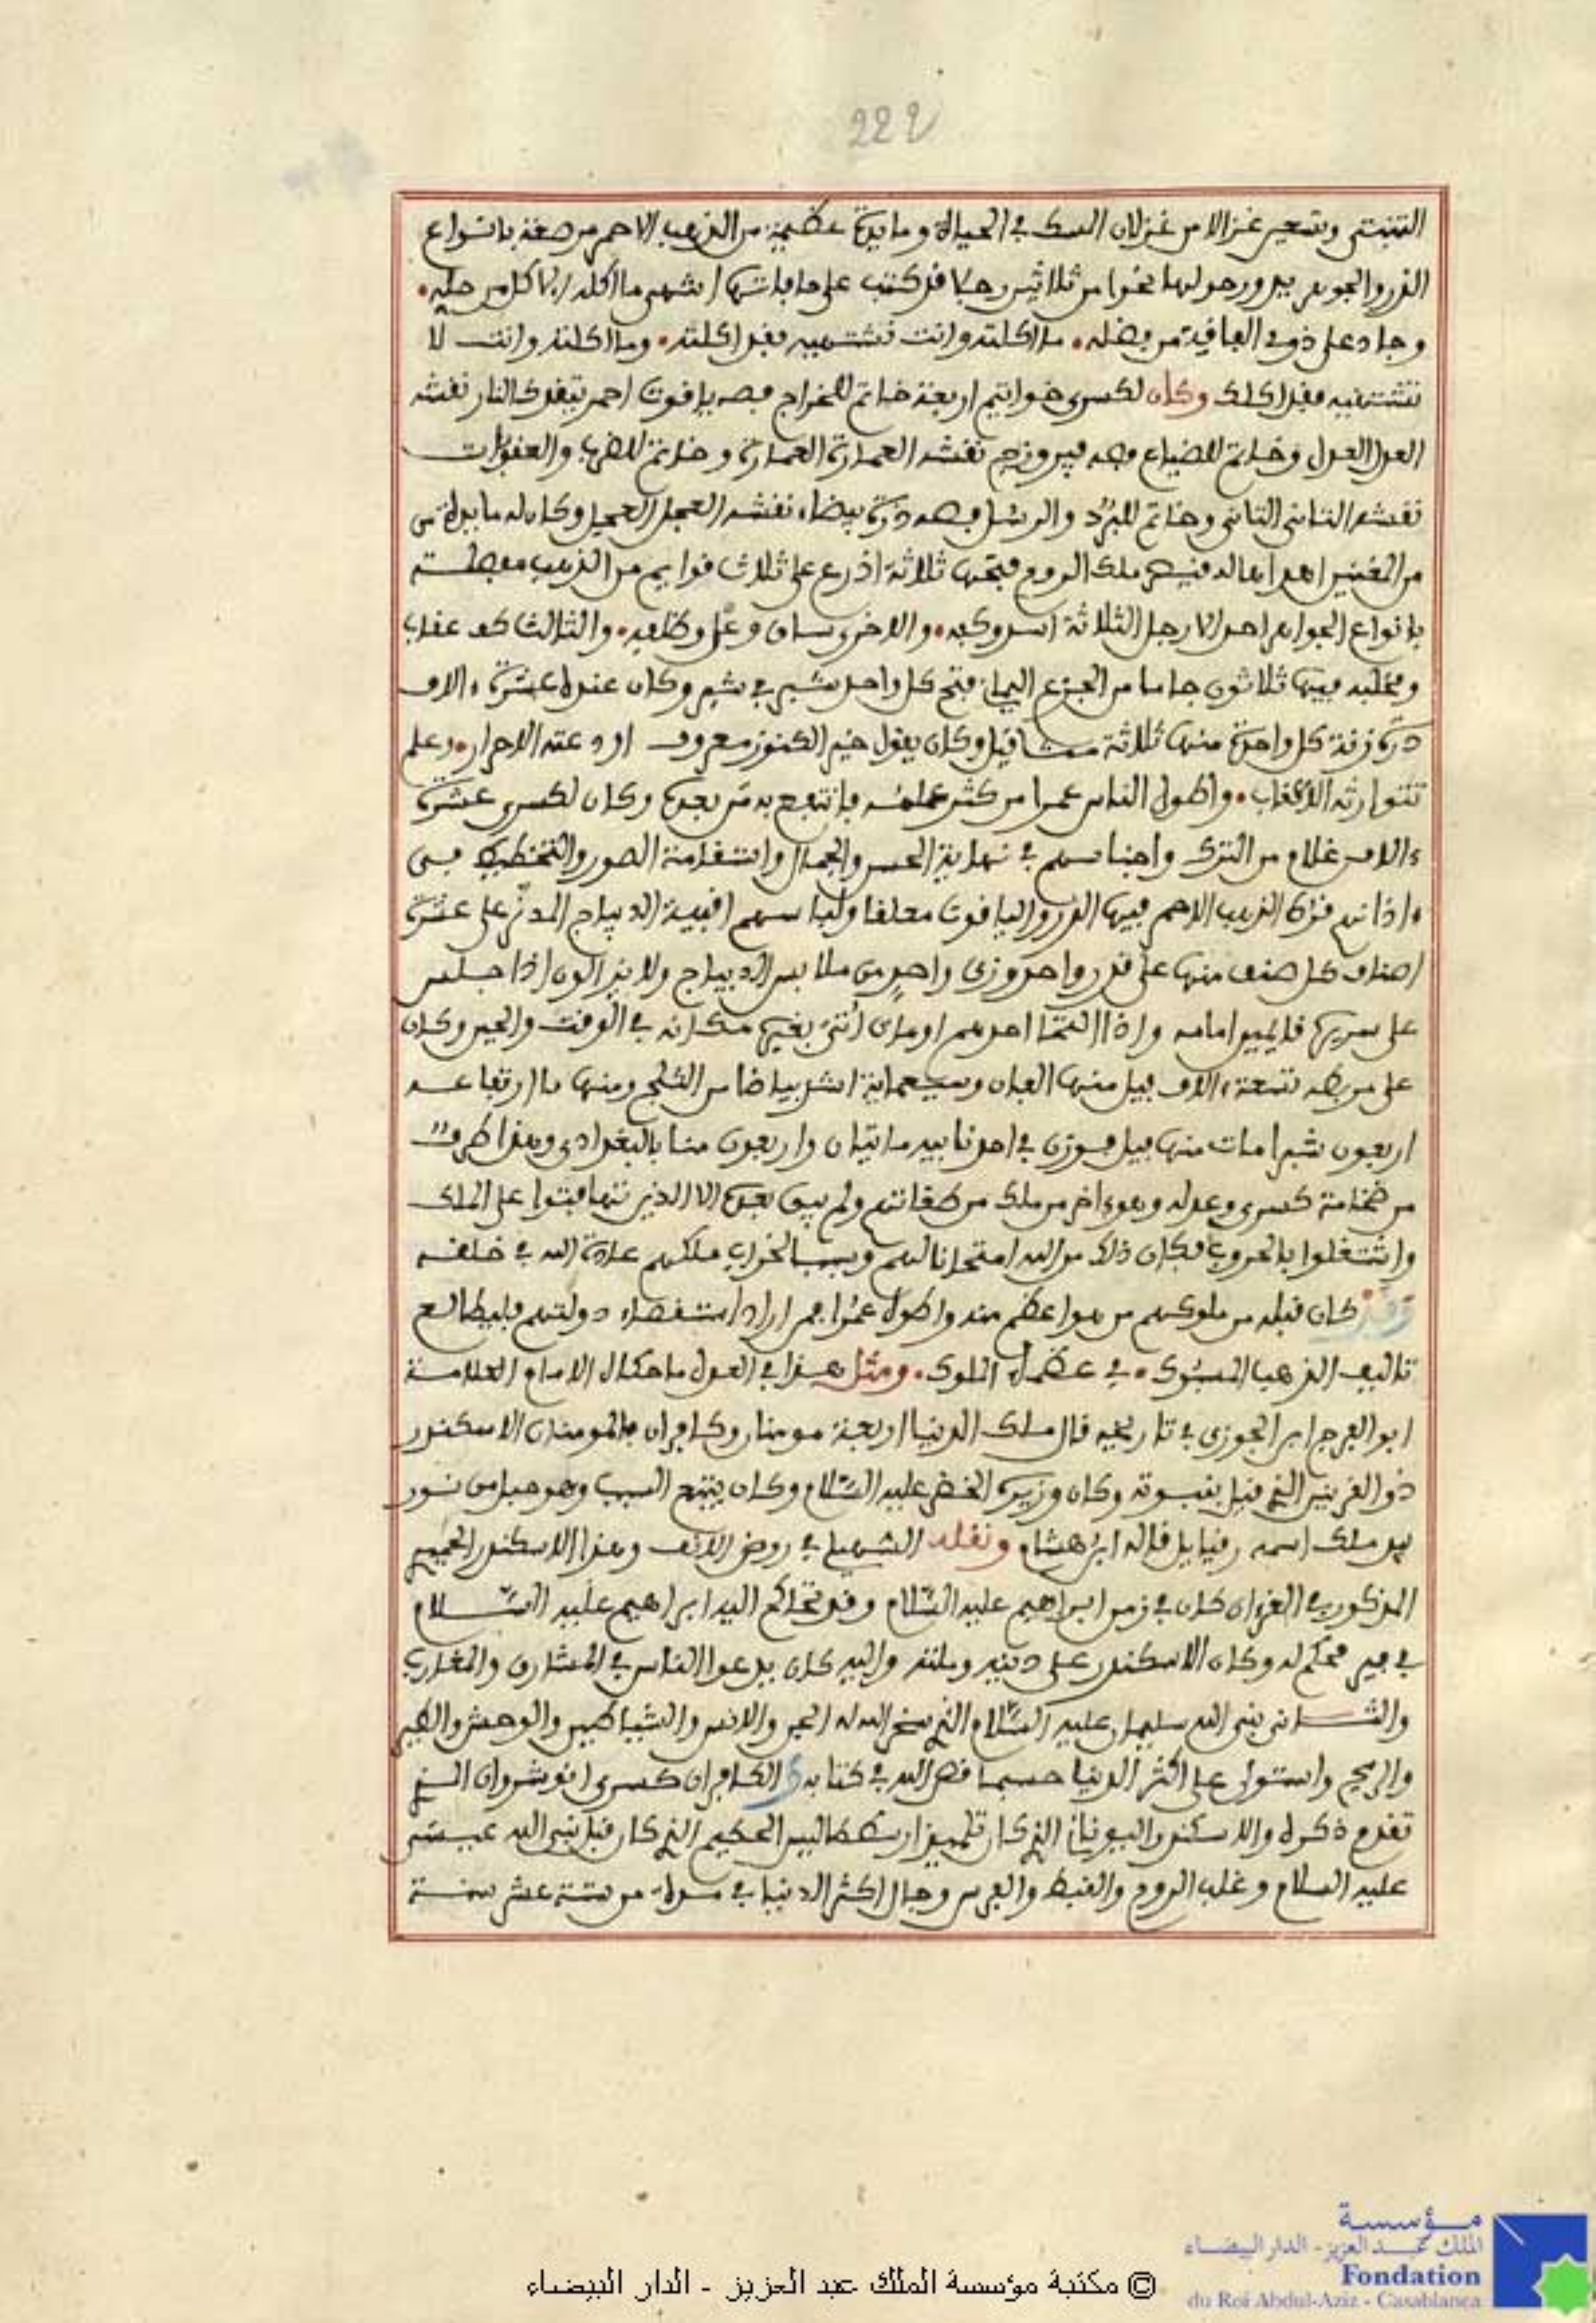 222
التبتي وتسعين غزالا من غزلان المسك في الحياة ومايدة عظيمة من الذهب الاحمر مرصعة بانواع
الدرر والجوهر يدور حولها نحوا من ثلاثين رجلا قد كتب على حافاتها اشهى ما اكله الاكل من حله
وجاد على ذوي الفاقة من فضله ما اكلته وانت تشتهيه فقد اكلته وما اكلته وانت لا
تشتهيه فقد اكلك وكان لكسرى خواتيم اربعة خاتم للخراج فصه ياقوت احمر يتقد كالنار نقشه
العدل العدل وخاتم للضياع فصه فيروزج نقشه العمارة العمارة وخاتم للضرب والعقوبات
نقشه التاني التاني وخاتم للبرد والرسل فصه درة بيضاء نقشه العجل العجل وكان له مايدة من
اهداها له قيصر ملك الروم فتحها ثلاثة اذرع على ثلاث قوايم من الذهب مفصلة
بانواع الجواهر احد الارجل الثلاثة اسد وكفه والاخرى ساق وعل وظلفه والثالث كف عقاب
ومخلبه فيها ثلاثون جاما من الجزع اليماني فتح كل واحد شبر في شبر وكان عنده عشرة ءالاف
درة زنة كل واحدة منها ثلاثة مثاقيل وكان يقول خير الكنوز معروف اودعته الاحرار وعلم
تتوارثه الاعقاب واطول الناس عمرا من كثر علمه فانتفع به من بعده وكان لكسرى عشرة
ءالاف غلام من الترك واجناسهم في نهاية الحسن والجمال واستقامة الصور والتخطيط في
ءاذانهم قرط الذهب الاحمر فيها الدرر والياقوت معلقا ولباسهم اقبية الديباج المدثر على عشرة
اصناف كل صنف منها على قدر واحد وزي واحد من ملابس الديباج ولا يزالون اذا جلس
على سريره قايمين امامه واذا التحا احدهم او مات أتي بغيره مكانه في الوقت والحين وكان
على مربطه تسعة ءالاف فيل منها الفان وسبعماية اشد بياضا من الثلج ومنها ما ارتفاعه
اربعون شبرا مات منها فيل فوزن في احد نابيه مائتان واربعون منا بالبغدادي وهذا طرف
من ضخامة كسرى وعدله وهو ءاخر من ملك من طغاتهم ولم يبق بعده الا الذين تهافتوا على الملك
واشتغلوا بالحروب فكان ذلك من الله امتحانا لهم وسببا لخراب ملكهم عادة الله في خلقه
وقد كان قبله من ملوكهم من هو اعظم منه واطول عمرا فمن اراد استقصاء دولتهم فليطالع
تاليف الذهب المسبوك في عظماء الملوك ومثل هذا في العدل ما حكاه الامام العلامة
ابو الفرج ابن الجوزي في تاريخه قال ملك الدنيا اربعة مومنان وكافران فالمومنان الاسكندر
ذو القرنين الذي قيل بنبوته وكان وزيره الخضر عليه السلام وكان يتبع السبب وهو حبل من نور
بيد ملك اسمه رفيايل قاله ابن هشام ونقله السهيلي في روض الانف وهذا الاسكندر الحميري
المذكور في القرءان كان في زمن ابراهيم عليه السلام وقد تحاكم اليه ابراهيم عليه السلام
في بير فحكم له وكان الاسكندر على دينه وملته واليه كان يدعوا الناس في المشارق والمغارب
والثاني نبي الله سليمان عليه السلام الذي سخر الله له الجن والانس والشياطين والوحش والطير
والريح واستولى على اكثر الدنيا حسبما قص الله في كتابه والكافران كسرى انوشروان الذي
تقدم ذكره والاسكندر اليوناني الذي كان تلميذ ارسطاطاليس الحكيم الذي كان قبل نبي الله عيسى
عليه السلام وغلب الروم والقبط والفرس وجال اكثر الدنيا في مدة من ستة عشر سنة
مؤسسة
الملك عبد العزيز - الدار البيضاء
Fondation
du Roi Abdul-Aziz - Casablanca
© مكتبة مؤسسة الملك عبد العزيز - الدار البيضاء